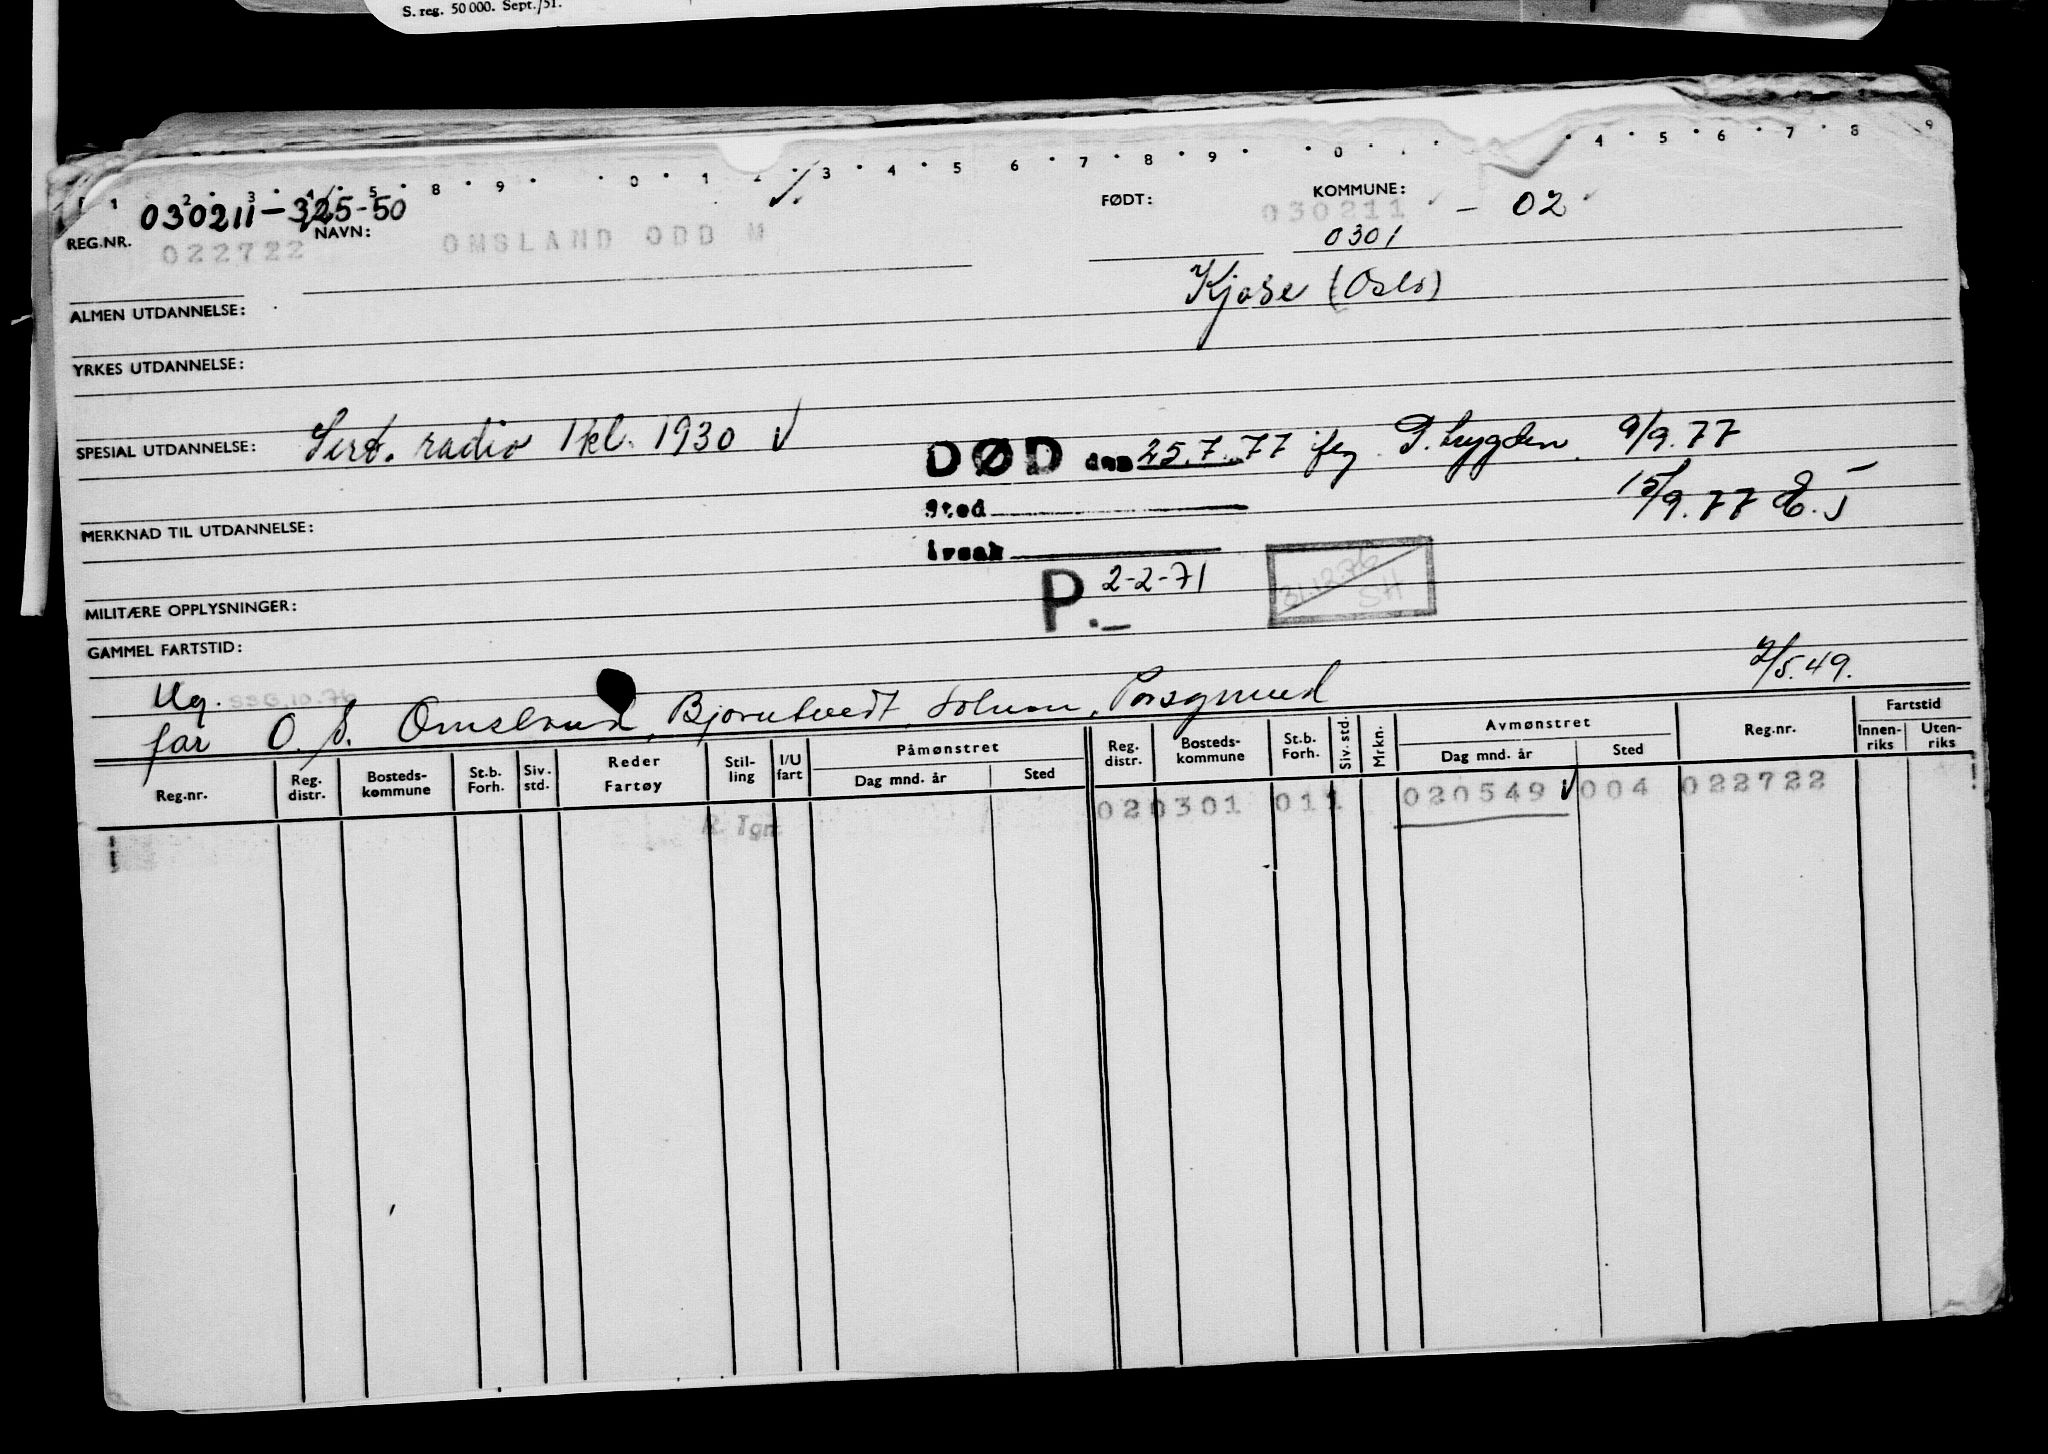 S. reg. 50 000. Sept./51.
1 2 3 4 5 8 9 0 1 2 3 4 5 6 7 8 9 0 4 5 6 7 8 9
REG.NR. 030211-325-50 NAVN: FØDT: KOMMUNE:
022722 OMSLAND ODD M 030211 - 02
0301
Kjose (Oslo)
ALMEN UTDANNELSE:
YRKES UTDANNELSE:
SPESIAL UTDANNELSE: Sert. radio 1 kl. 1930
DØD den 25.7.77 P. trygden. 9/9.77
sted 15/9.77
MERKNAD TIL UTDANNELSE:
årsak
P.- 2-2-71
311276
SH
MILITÆRE OPPLYSNINGER:
GAMMEL FARTSTID:
Ug. 2/5.49.
far O. S. Omsland, Bjorntvedt, Solum, Porsgrund
Reg.nr. Reg. distr. Bosteds- kommune St.b. Forh. Siv. std. Reder Fartøy Stil- ling I/U fart Påmønstret Dag mnd. år Sted Reg. distr. Bosteds- kommune St.b. Forh. Siv. std. Mrkn. Avmønstret Dag mnd. år Sted Reg.nr. Fartstid Innen- riks Uten- riks
R Tgr 020301 011 020549 004 022722